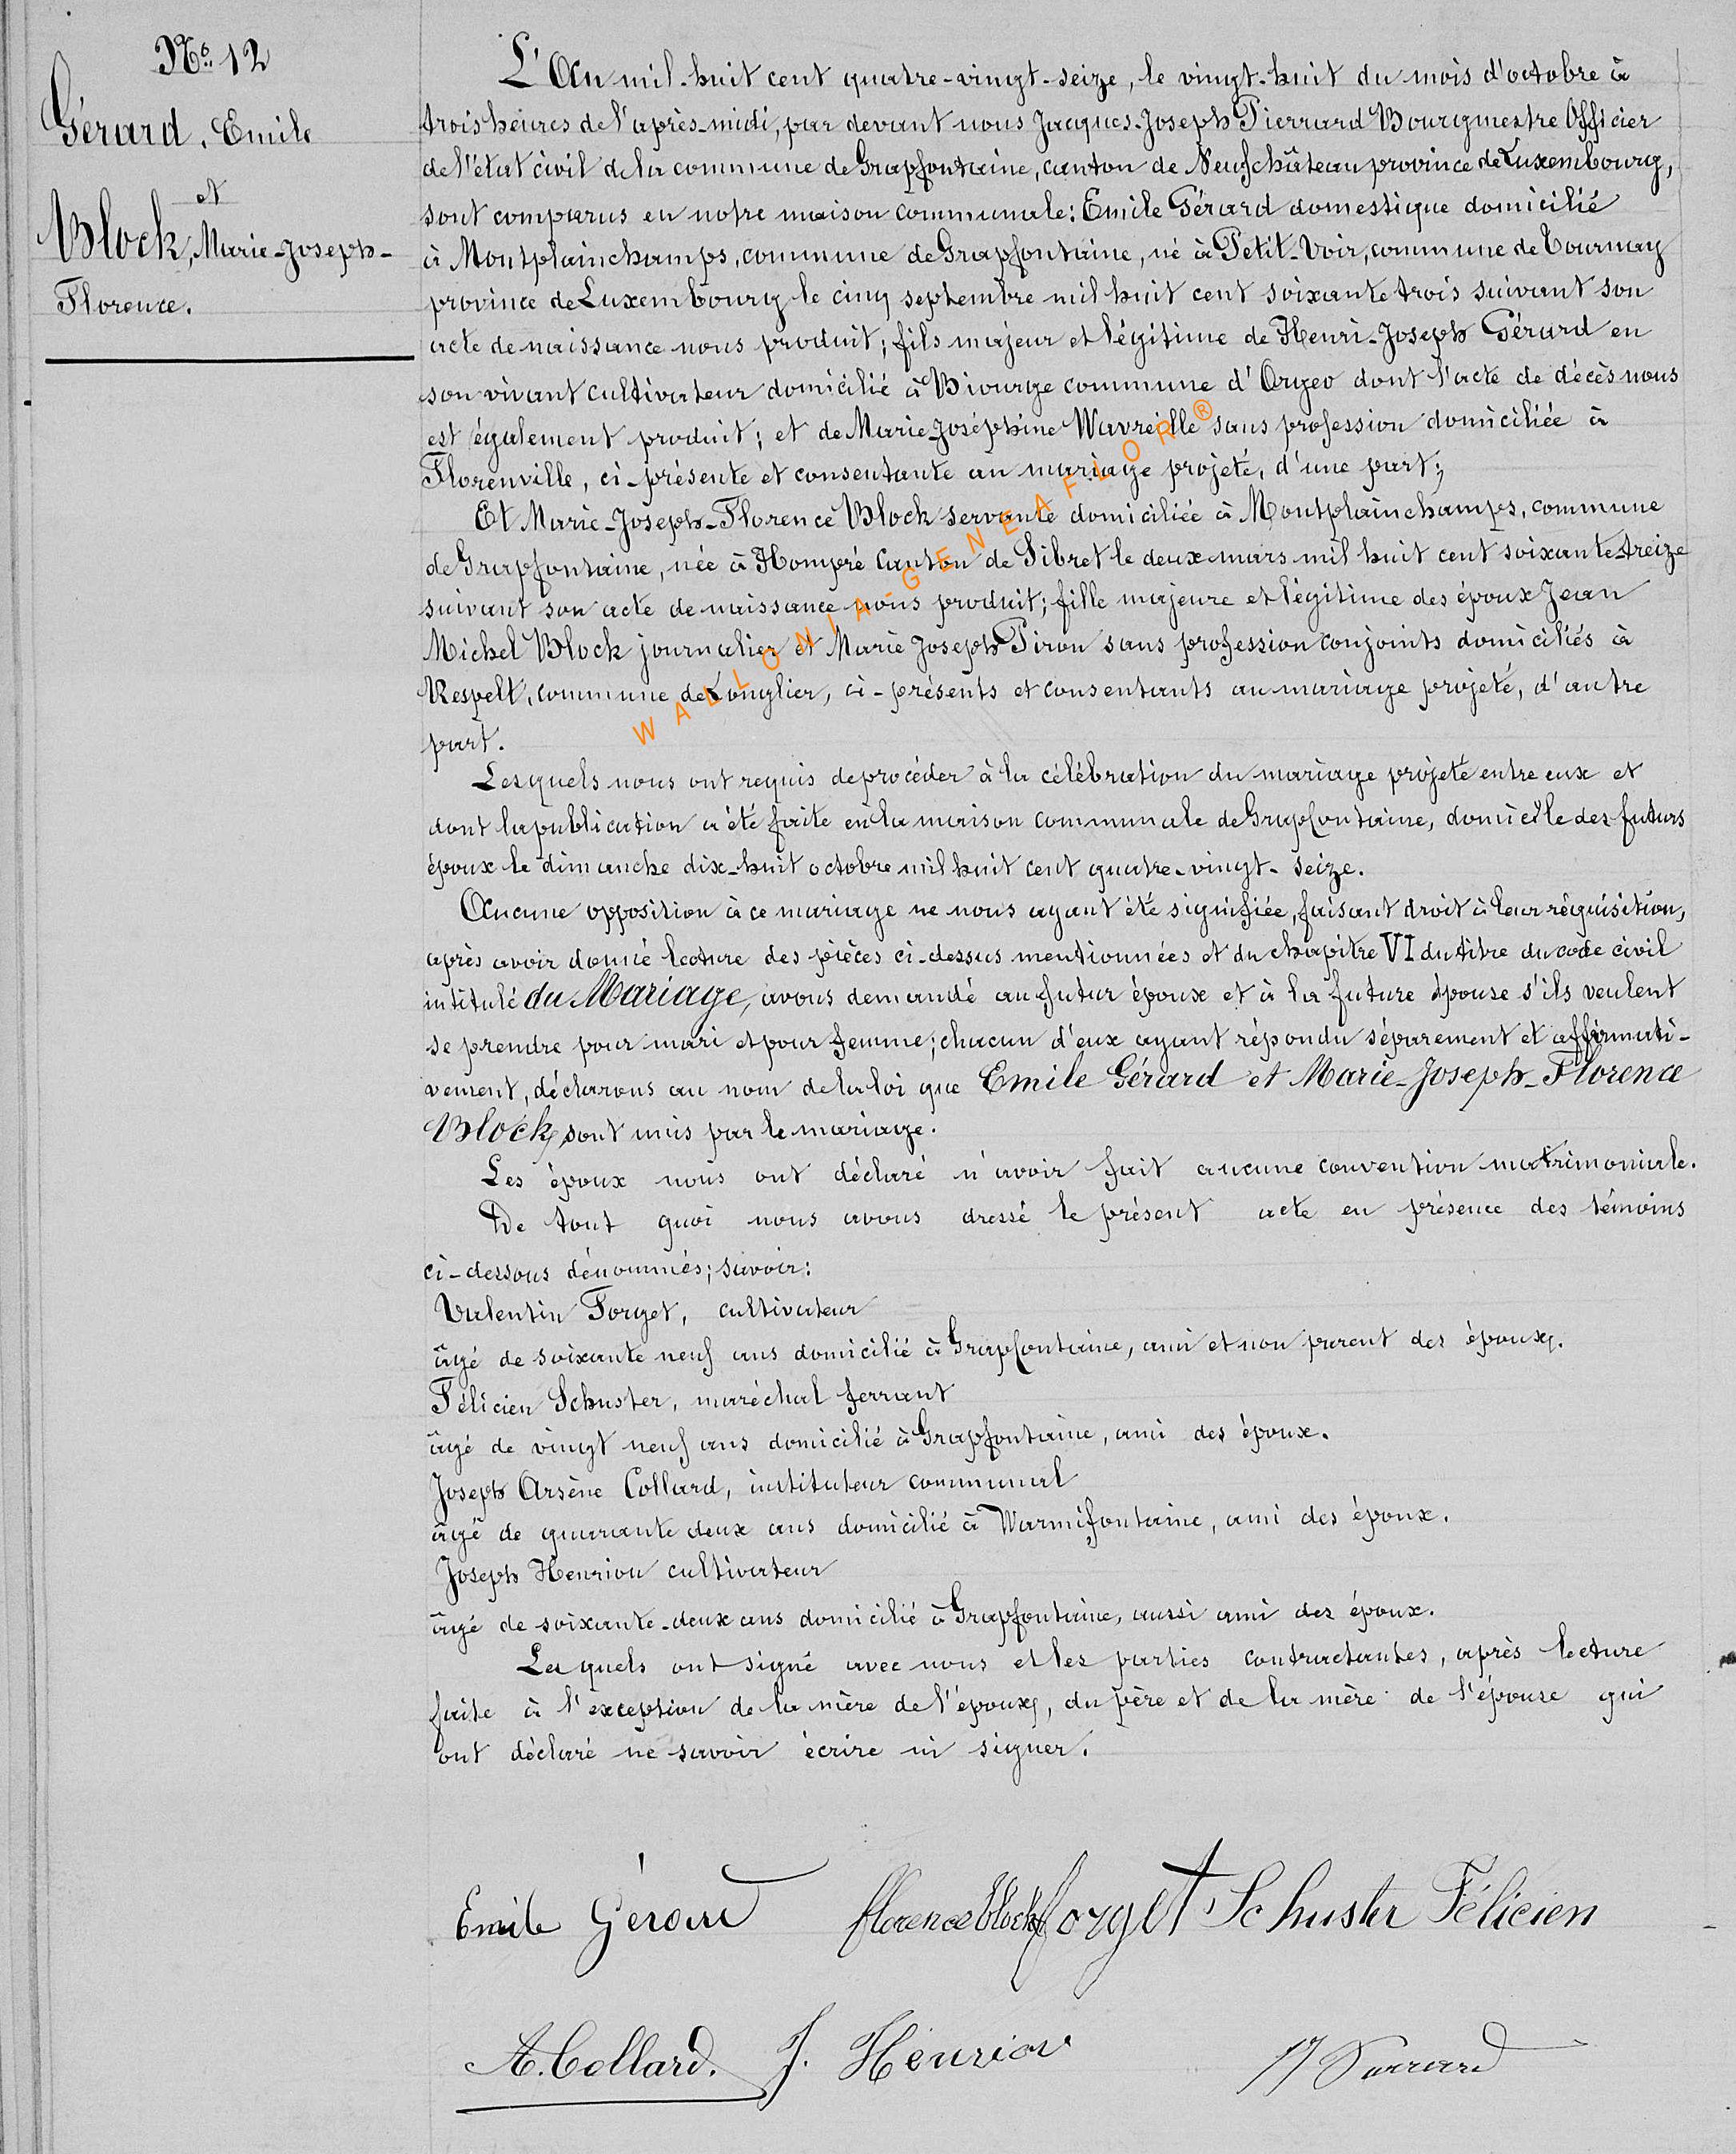 No. 12
Gérard, Emile
et
Block, Marie-Joseph-
Florence.
L'An mil-huit cent quatre-vingt-seize, le vingt-huit du mois d'octobre à
trois heures de l'après-midi, par devant nous Jacques-Joseph Pierrard Bourgmestre Officier
de l'état civil de la commune de Grapfontaine, canton de Neufchâteau province de Luxembourg,
sont comparus en notre maison communale: Emile Gérard domestique domicilié
à Montplainchamps, commune de Grapfontaine, né à Petit-Voir, commune de Tournay
province de Luxembourg le cinq septembre mil huit cent soixante trois suivant son
acte de naissance nous produit; fils majeur et légitime de Henri-Joseph Gérard en
son vivant cultivateur domicilié à Biourge commune d'Orgeo dont l'acte de décès nous
est également produit; et de Marie-Joséphine Wavreille sans profession domiciliée à
Florenville, ci-présente et consentante au mariage projeté, d'une part;
Et Marie-Joseph-Florence Block servante domiciliée à Montplainchamps, commune
de Grapfontaine, née à Hompré Canton de Sibret le deux mars mil huit cent soixante-treize
suivant son acte de naissance nous produit; fille majeure et légitime des époux Jean
Michel Block journalier et Marie Joseph Piron sans profession conjoints domiciliés à
Respelt, commune de Longlier, ci-présents et consentants au mariage projeté, d'autre
part.
Lesquels nous ont requis de procéder à la célébration du mariage projeté entre eux et
dont la publication a été faite en la maison communale de Grapfontaine, domicile des futurs
époux le dimanche dix-huit octobre mil huit cent quatre-vingt-seize.
Aucune opposition à ce mariage ne nous ayant été signifiée, faisant droit à leur réquisition,
après avoir donné lecture des pièces ci-dessus mentionnées et du chapitre VI du titre du code civil
intitulé du Mariage, avons demandé au futur époux et à la future épouse s'ils veulent
se prendre pour mari et pour femme; chacun d'eux ayant répondu séparement et affirmati-
vement, déclarons au nom de la loi que Emile Gérard et Marie-Joseph-Florence
Block, sont unis par le mariage.
Les époux nous ont déclaré n'avoir fait aucune convention matrimoniale.
De tout quoi nous avons dressé le présent acte en présence des témoins
ci-dessous dénommés; savoir:
Valentin Forget, cultivateur
âgé de soixante neuf ans domicilié à Grapfontaine, ami et non parent des époux.
Félicien Schuster, maréchal ferrant
âgé de vingt neuf ans domicilié à Grapfontaine, ami des époux.
Joseph Arsène Collard, instituteur communal
âgé de quarante deux ans domicilié à Warmifontaine, ami des époux.
Joseph Henrion cultivateur
âgé de soixante-deux ans domicilié à Grapfontaine, aussi ami des époux.
Lesquels ont signé avec nous et les parties contractantes, après lecture
faite à l'exception de la mère de l'époux, du père et de la mère de l'épouse qui
ont déclaré ne savoir écrire ni signer.
Emile Gérard florence block forget Schuster Félicien
A. Collard. J. Henrion JJ Pierrard
WALLONIA-GENEAFLOR®